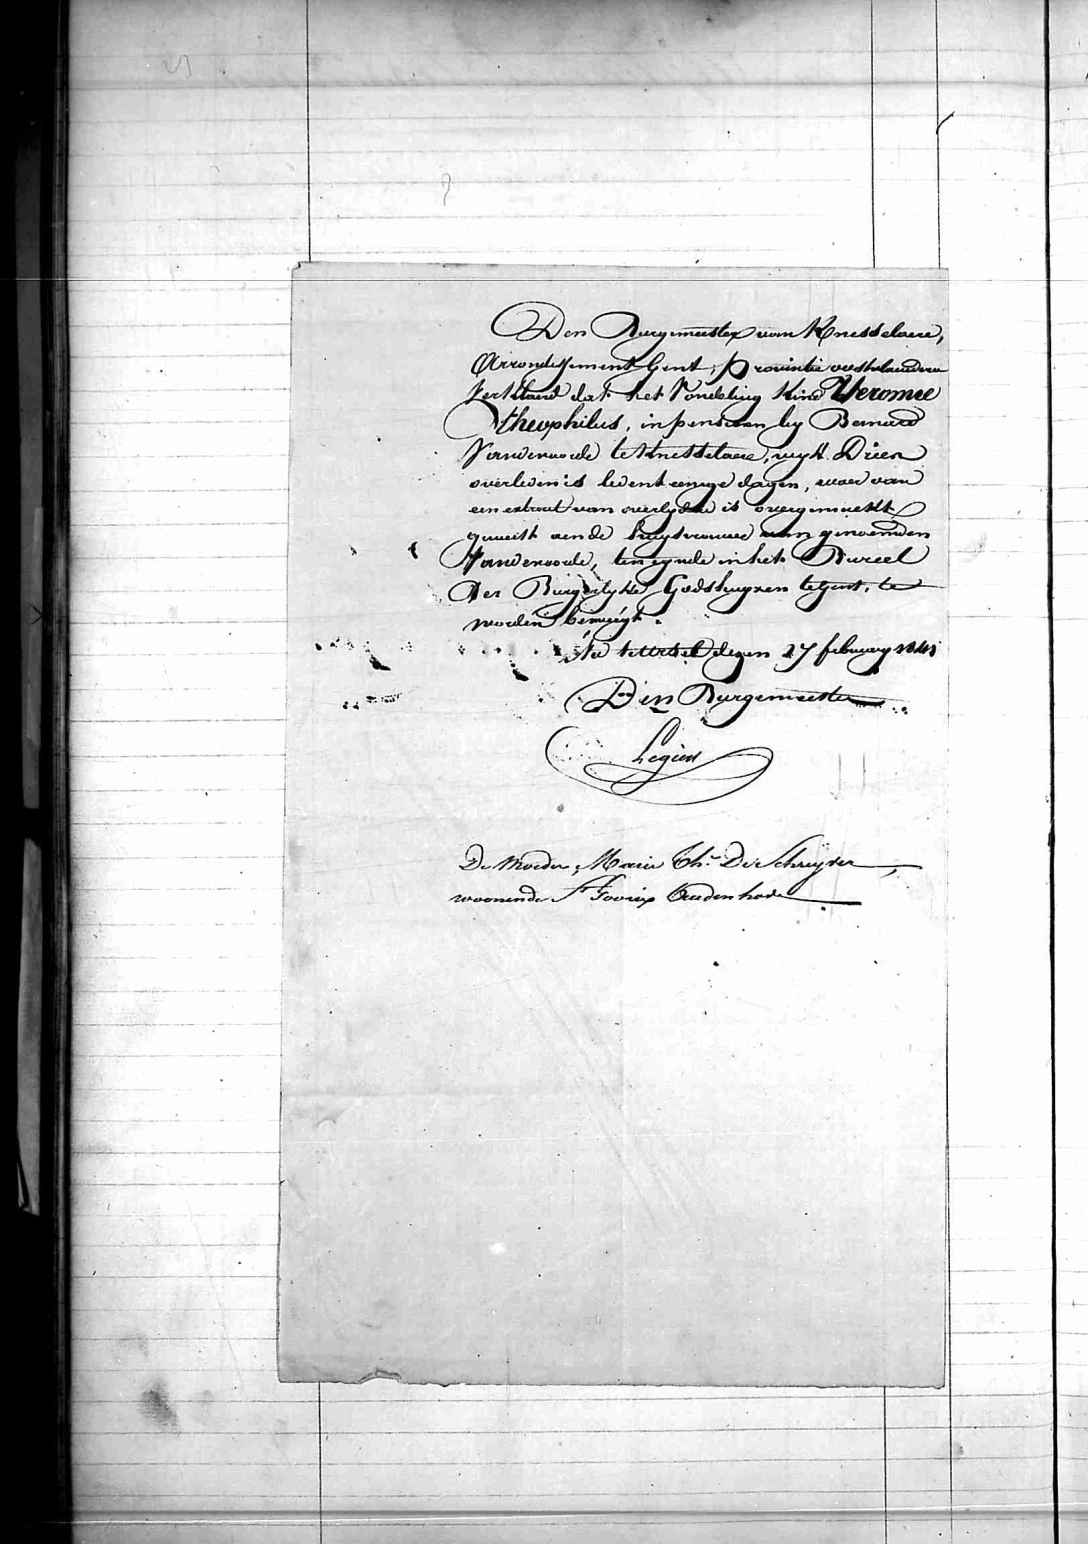 Den Burgemeester van Knesselaere,
Arrondissement Gent, provintie oostvlaendren
verklaerd dat het vondeling kind Yeromee
theophilus, in pensioen by Bernard
Vandevoorde te Knesselaere, wyk Driesen
overleden is sedert eenige dagen, waer van
een extract van overlyden is overgemaekt
geweest aen de huysvrouwe van genoemden
Vandevoorde, ten eynde in het Bureel
der Burgerlyke Godshuyzen te gent, te
worden
te Ursel dezen 27 february 1841
Den Burgemeester
De Moeder, Marie Th. De Schryver,
woonende Audenhove